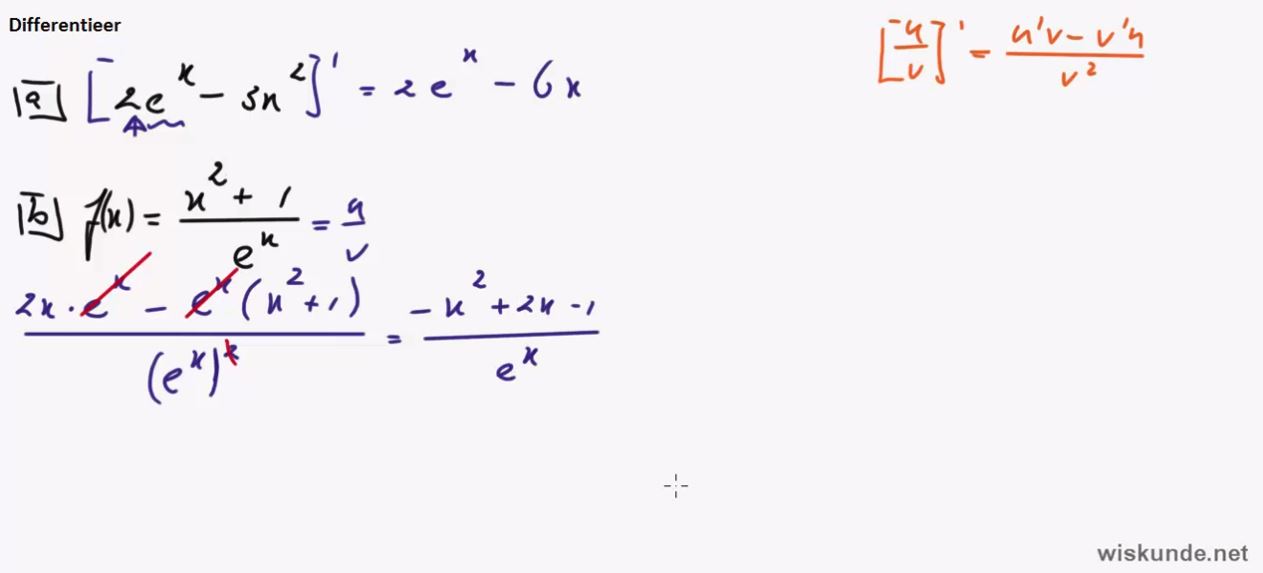 Differentieer
[u/v]' = (u'v - v'u)/v²
a [2e^x - 3x²]' = 2e^x - 6x
b f(x) = (x² + 1)/e^x = u/v
(2x · e^x - e^x (x² + 1))/(e^x)² = (-x² + 2x - 1)/e^x
wiskunde.net